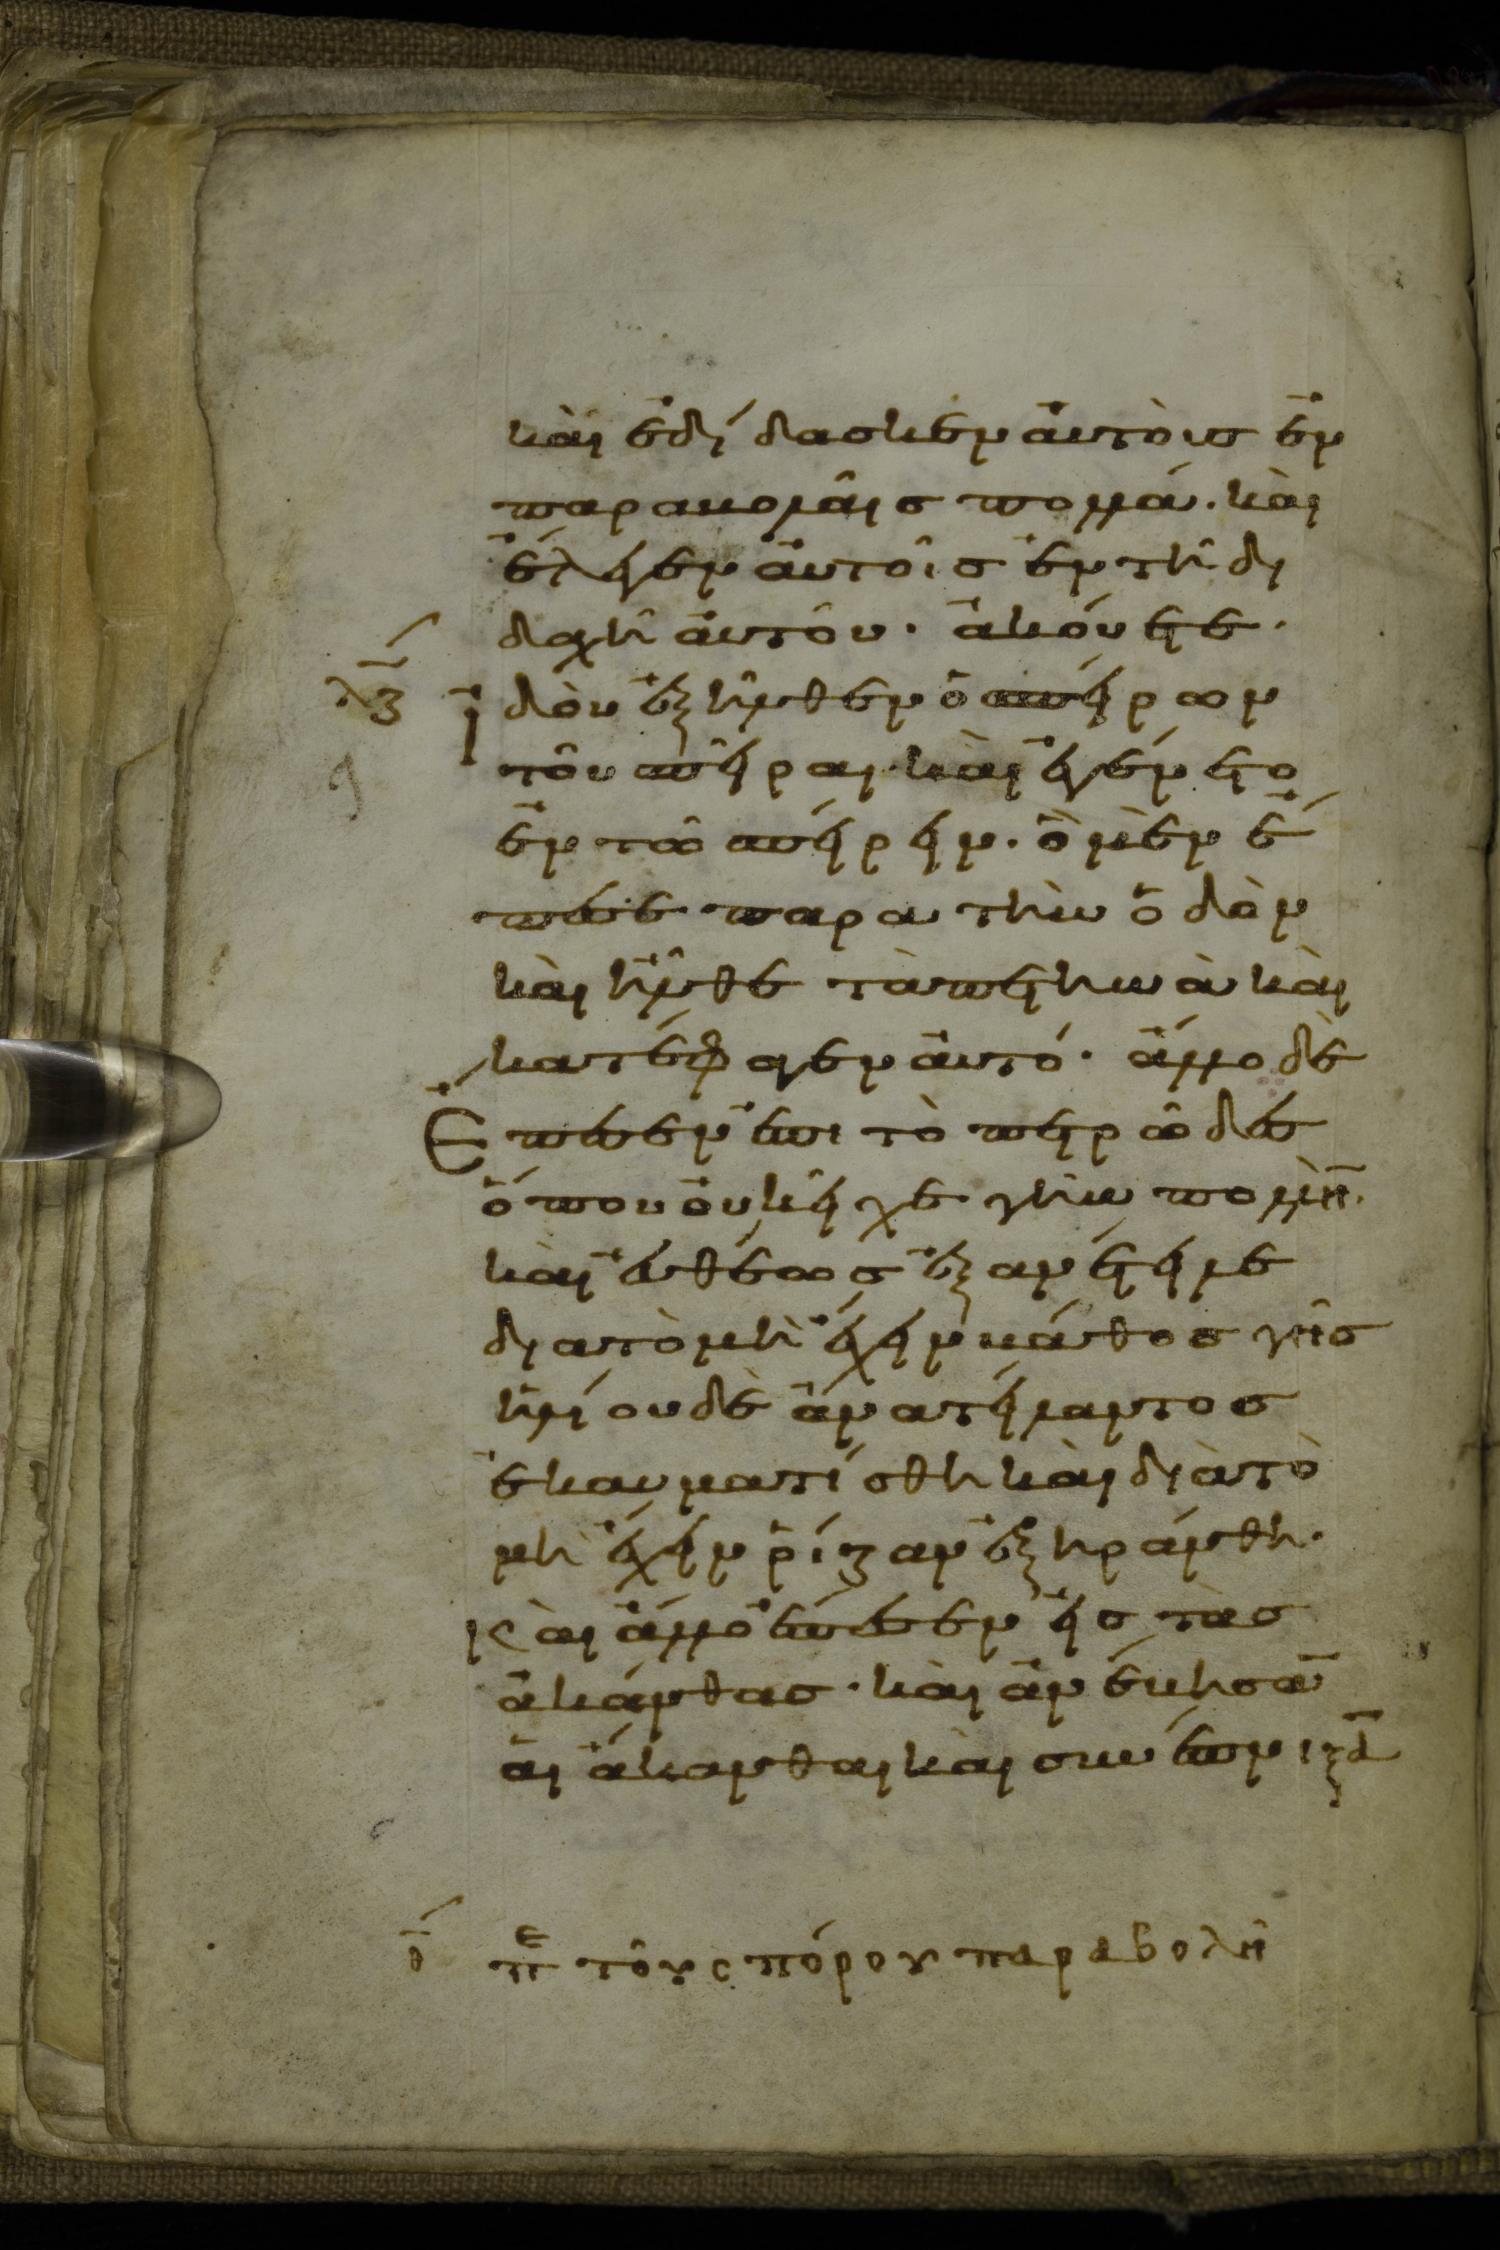 καὶ ἐδίδασκεν ἀυτὸις ἐν
παραβολᾶις πολλά. καὶ
ἔλεγεν ἀυτοῖς ἐν τῆ δι
δαχῆ ἀυτοῦ. ἀκούετε.
λϛ ἰδοὺ ἐξῆλθεν ὁ σπείρων
τοῦ σπεῖραι. καὶ ἐγένετο
ἐν τῶ σπείρειν. ὃ μὲν ἔ
πεσε παρα τὴν ὁδὸν
καὶ ἦλθε τὰ πετεινὰ καὶ
κατέφαγεν ἀυτό. ἄλλο δὲ
Ἔπεσεν ἐπι τὸ πετρῶδες
ὅπου οὐκ εἶχε γὴν πολλὴν.
καὶ ἐυθέως ἐξανέτειλε
διατὸ μὴ ἔχειν βάθος γῆς
ἡλίου δὲ ἀνατείλαντος
ἐκαυματίσθη καὶ διὰ τὸ
μὴ ἔχειν ῥίζαν ἐξηράνθη.
καὶ ἄλλο ἔπεσεν εἰς τὰς
ἀκάνθας. καὶ ἀνέβησαν
ἁι ἄκανθαι καὶ συνέπνιξα
θ πε τοῦ σπόρου παραβολῆ